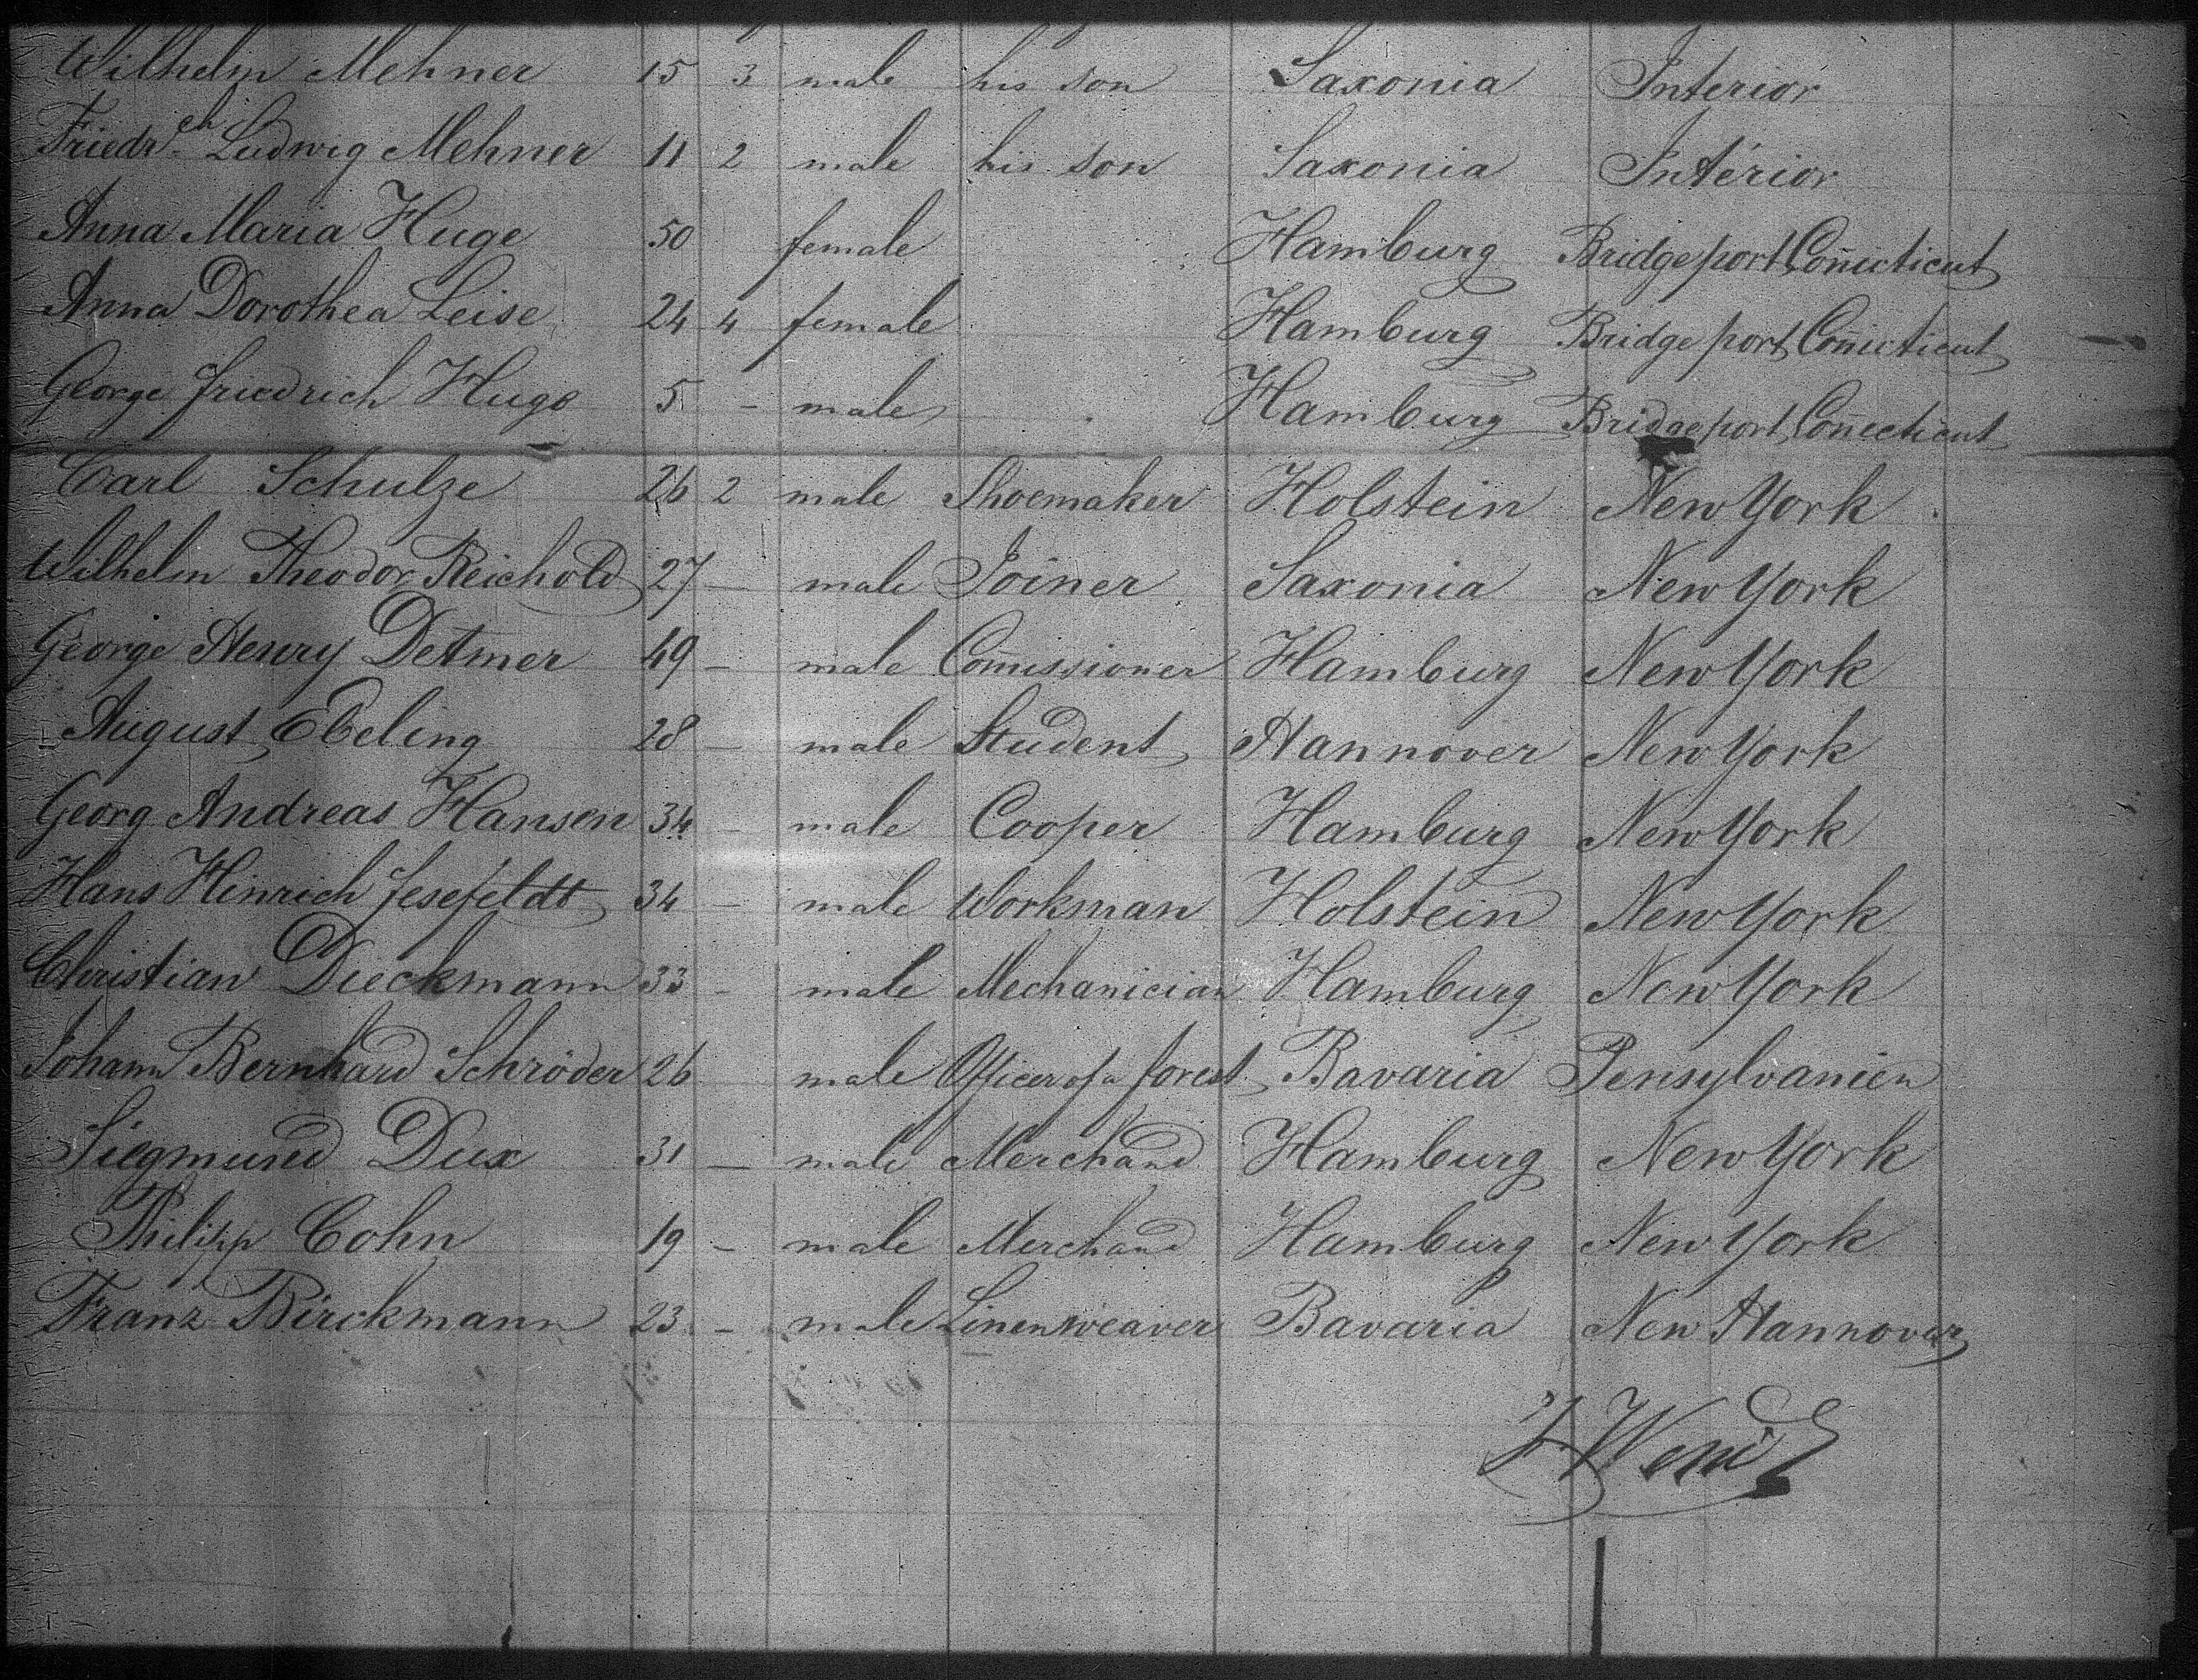 Wilhelm Mehner 15 3 male his son Saxonia Interior
Friedrch Ludwig Mehner 11 2 male his son Saxonia Intérior
Anna Maria Huge 50 female Hamburg Bridgeport Coñicticut
Anna Dorothea Leise 24 4 female Hamburg Bridgeport Coñicticut
George Friedrich Huge 5 - male Hamburg Bridgeport Coñecticut
Carl Schulze 26 2 male Shoemaker Holstein New York
Wilhelm Theodor Reichold 27 - male Joiner Saxonia New York
George Henry Detmer 49 - male Com̃issioner Hamburg New York
August Ebeling 28 - male Student Hannover New York
Georg Andreas Hansen 34 - male Cooper Hamburg New York
Hans Hinrich Jesefeldt 34 - male Workman Holstein New York
Christian Dieckmann 33 - male Mechanician Hamburg New York
Johann Bernhard Schröder 26 male Officer of a forest Bavaria Pensylvanien
Siegmund Dux 31 - male Merchand Hamburg New York
Philipp Cohn 19 - male Merchand Hamburg New York
Franz Birckmann 23 - male Linenweaver Bavaria New Hannover